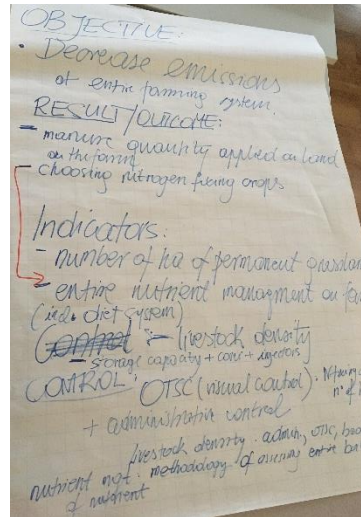 OBJECTIVE:
• Decrease emissions
of entire farming system.
RESULT/OUTCOME:
- manure quantity applied on land
on the farm
- choosing nitrogen fixing crops
Indicators:
- number of ha of permanent
- entire nutrient managment on
(incl. diet system)
Control - livestock density
storage capacity + cover + injectors
CONTROL: OTSC (visual control)
+ administrative control
livestock density: admin, OTSC,
nutrient mgt: methodology of assessing entire
of nutrient